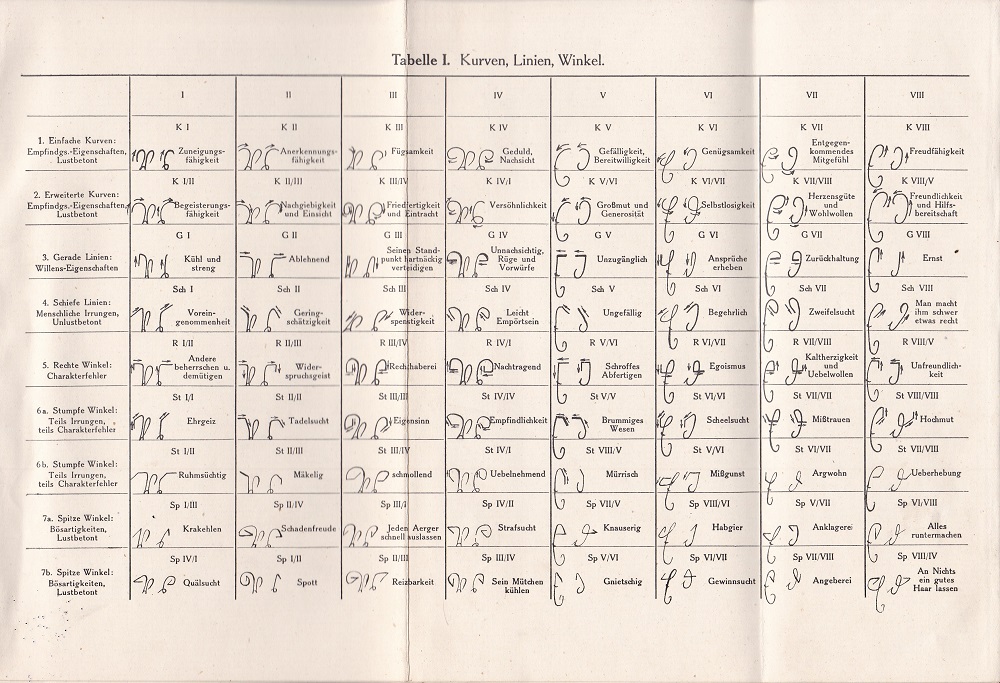 Tabelle I. Kurven, Linien, Winkel.
I II III IV V VI VII VIII
K I K II K III K IV K V K VI K VII K VIII
1. Einfache Kurven:
Empfindgs.-Eigenschaften,
Lustbetont
Zuneigungs-
fähigkeit
Anerkennungs-
fähigkeit
Fügsamkeit
Geduld,
Nachsicht
Gefälligkeit,
Bereitwilligkeit
Genügsamkeit
Entgegen-
kommendes
Mitgefühl
Freudfähigkeit
K I/II K II/III K III/IV K IV/I K V/VI K VI/VII K VII/VIII K VIII/V
2. Erweiterte Kurven:
Empfindgs.-Eigenschaften,
Lustbetont
Begeisterungs-
fähigkeit
Nachgiebigkeit
und Einsicht
Friedfertigkeit
und Eintracht
Versöhnlichkeit
Großmut und
Generosität
Selbstlosigkeit
Herzensgüte
und
Wohlwollen
Freundlichkeit
und Hilfs-
bereitschaft
G I G II G III G IV G V G VI G VII G VIII
3. Gerade Linien:
Willens-Eigenschaften
Kühl und
streng
Ablehnend
Seinen Stand-
punkt hartnäckig
verteidigen
Unnachsichtig,
Rüge und
Vorwürfe
Unzugänglich
Ansprüche
erheben
Zurückhaltung
Ernst
Sch I Sch II Sch III Sch IV Sch V Sch VI Sch VII Sch VIII
4. Schiefe Linien:
Menschliche Irrungen,
Unlustbetont
Vorein-
genommenheit
Gering-
schätzigkeit
Wider-
spenstigkeit
Leicht
Empörtsein
Ungefällig
Begehrlich
Zweifelsucht
Man macht
ihm schwer
etwas recht
R I/II R II/III R III/IV R IV/I R V/VI R VI/VII R VII/VIII R VIII/V
5. Rechte Winkel:
Charakterfehler
Andere
beherrschen u.
demütigen
Wider-
spruchsgeist
Rechthaberei
Nachtragend
Schroffes
Abfertigen
Egoismus
Kaltherzigkeit
und
Uebelwollen
Unfreundlich-
keit
St I/I St II/II St III/III St IV/IV St V/V St VI/VI St VII/VII St VIII/VIII
6a. Stumpfe Winkel:
Teils Irrungen,
teils Charakterfehler
Ehrgeiz
Tadelsucht
Eigensinn
Empfindlichkeit
Brummiges
Wesen
Scheelsucht
Mißtrauen
Hochmut
St I/II St II/III St III/IV St IV/I St VIII/V St V/VI St VI/VII St VII/VIII
6b. Stumpfe Winkel:
Teils Irrungen,
teils Charakterfehler
Ruhmsüchtig
Mäkelig
schmollend
Uebelnehmend
Mürrisch
Mißgunst
Argwohn
Ueberhebung
Sp I/III Sp II/IV Sp III/I Sp IV/II Sp VII/V Sp VIII/VI Sp V/VII Sp VI/VIII
7a. Spitze Winkel:
Bösartigkeiten,
Lustbetont
Krakehlen
Schadenfreude
Jeden Aerger
schnell auslassen
Strafsucht
Knauserig
Habgier
Anklagerei
Alles
runtermachen
Sp IV/I Sp I/II Sp II/III Sp III/IV Sp V/VI Sp VI/VII Sp VII/VIII Sp VIII/IV
7b. Spitze Winkel:
Bösartigkeiten,
Lustbetont
Quälsucht
Spott
Reizbarkeit
Sein Mütchen
kühlen
Gnietschig
Gewinnsucht
Angeberei
An Nichts
ein gutes
Haar lassen